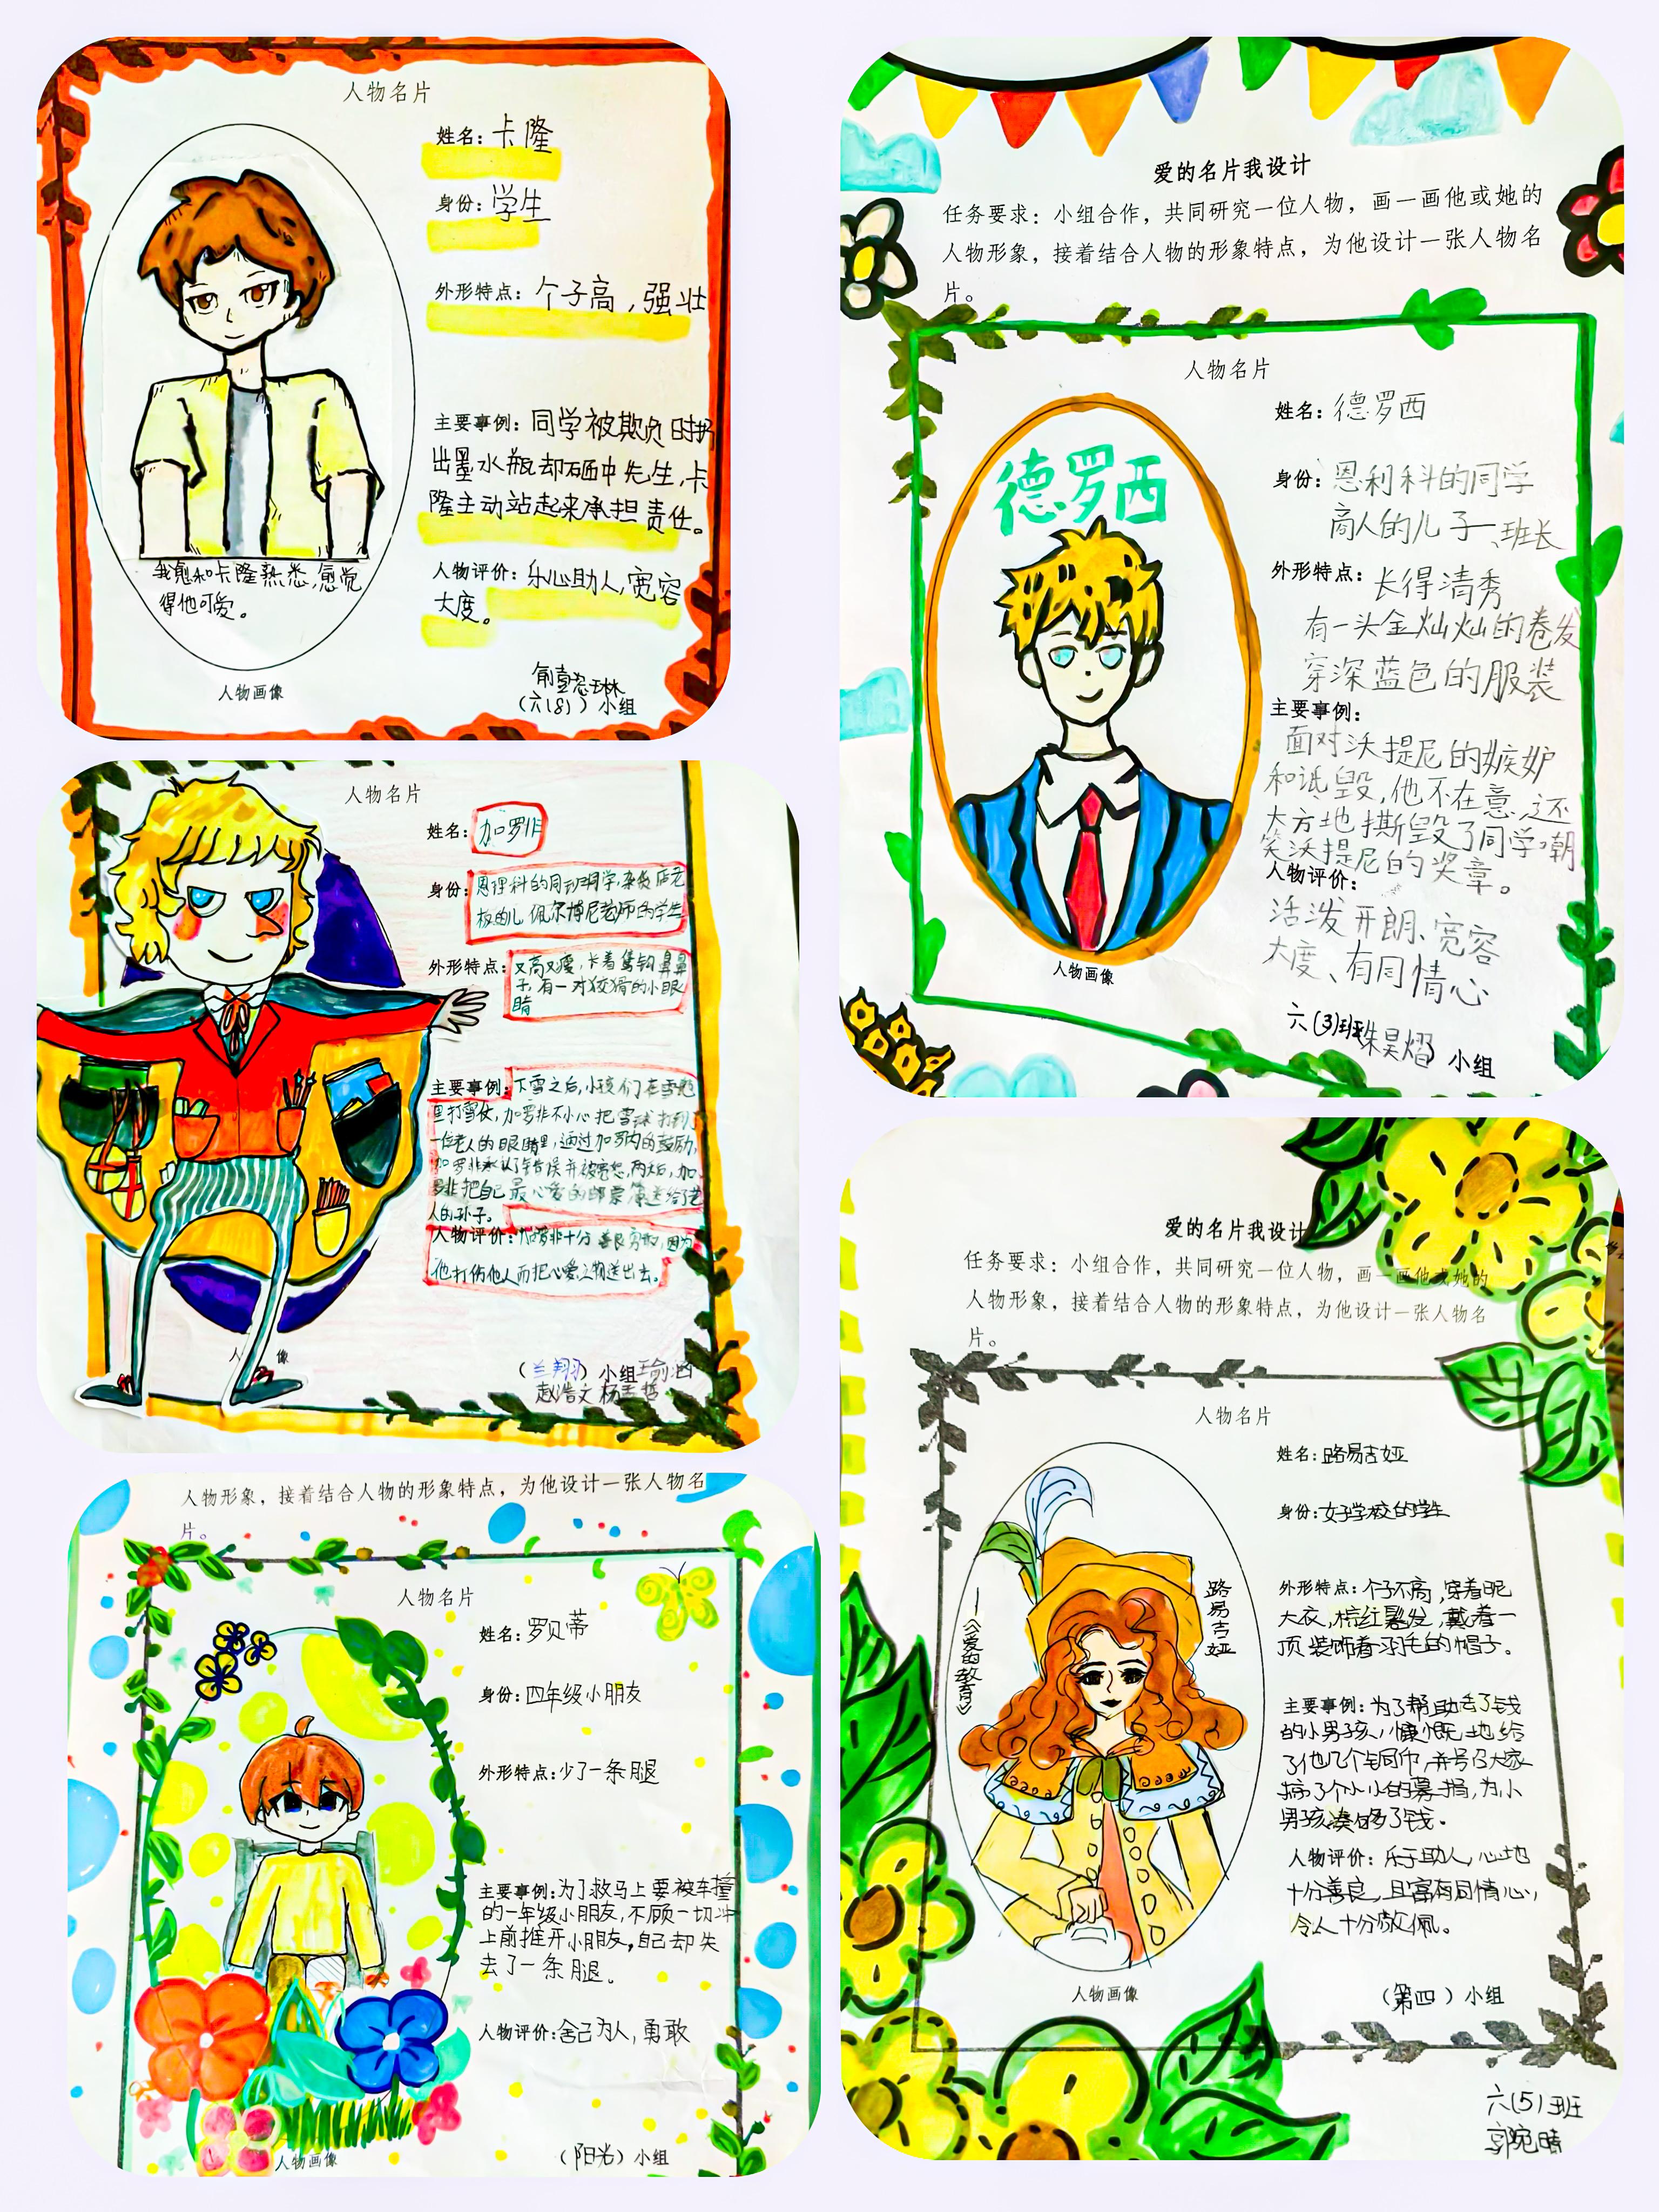 人物名片
姓名：卡隆
身份：学生
外形特点：个子高，强壮
主要事例：同学被欺负时扔
出墨水瓶却砸中先生，卡
隆主动站起来承担责任。
人物评价：乐心助人，宽容
大度。
我愈和卡隆熟悉，愈觉
得他可爱。
人物画像
（六（8））小组
人物名片
姓名：加罗非
身份：恩理科的同班同学，杂货店老
板的儿，佩尔博尼老师的学生
外形特点：又高又瘦，长着鹰钩鼻鼻
子，有一对狡猾的小眼
睛
主要事例：下雪之后，小孩们在雪地
里打雪仗，加罗非不小心把雪球打到了
一位老人的眼睛里，通过加罗内的鼓励，
加罗非承认了错误并被宽恕，两天后，加
罗非把自己最心爱的邮票簿送给了老
人的孙子。
人物评价：加罗非十分善良勇敢，因为
他打伤他人而把心爱之物送出去。
人 像
（兰翔）小组
赵浩文
人物形象，接着结合人物的形象特点，为他设计一张人物名
片。
人物名片
姓名：罗贝蒂
身份：四年级小朋友
外形特点：少了一条腿
主要事例：为了救马上要被车撞
的一年级小朋友，不顾一切冲
上前推开小朋友，自己却失
去了一条腿。
人物评价：舍己为人，勇敢
人物画像
（阳光）小组
爱的名片我设计
任务要求：小组合作，共同研究一位人物，画一画他或她的
人物形象，接着结合人物的形象特点，为他设计一张人物名
片。
人物名片
德罗西
姓名：德罗西
身份：恩利科的同学
商人的儿子、班长
外形特点：长得清秀
有一头金灿灿的卷发
穿深蓝色的服装
主要事例：
面对沃提尼的嫉妒
和诋毁，他不在意，还
大方地撕毁了同学嘲
笑沃提尼的奖章。
人物评价：
活泼开朗、宽容
大度、有同情心
人物画像
六（3）班朱昊熠 小组
爱的名片我设计
任务要求：小组合作，共同研究一位人物，画一画他或她的
人物形象，接着结合人物的形象特点，为他设计一张人物名
片。
人物名片
路易吉娅
——《爱的教育》
姓名：路易吉娅
身份：女子学校的学生
外形特点：个子不高，穿着呢
大衣，棕红髮发，戴着一
顶装饰着羽毛的帽子。
主要事例：为了帮助丢了钱
的小男孩，慷慨地给
了他几个铜币，并号召大家
搞了个小小的募捐，为小
男孩凑够了钱。
人物评价：乐于助人，心地
十分善良，且富有同情心，
令人十分敬佩。
人物画像
（第四）小组
六（5）班
郭宛晴